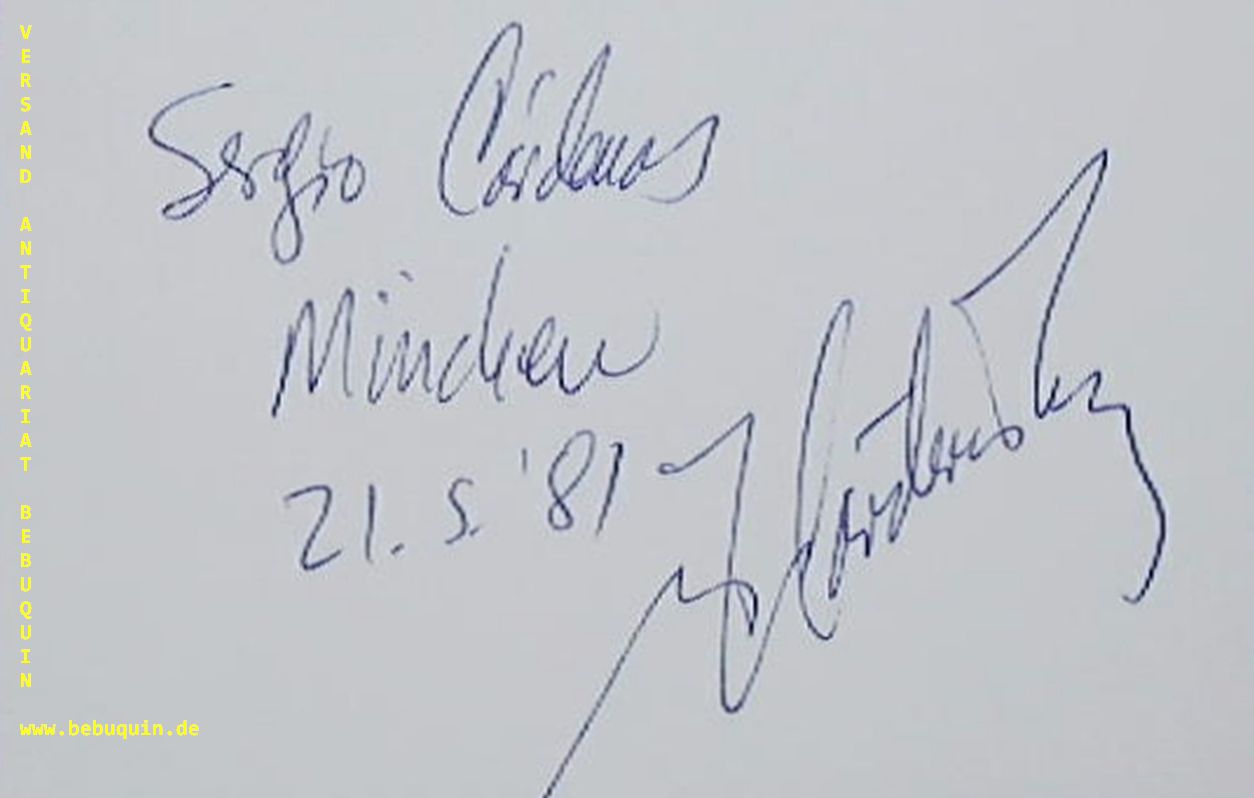 VERSAND ANTIQUARIAT BEBUQUIN
www.bebuquin.de
Sergio Cárdenas
München
21. 5. '81